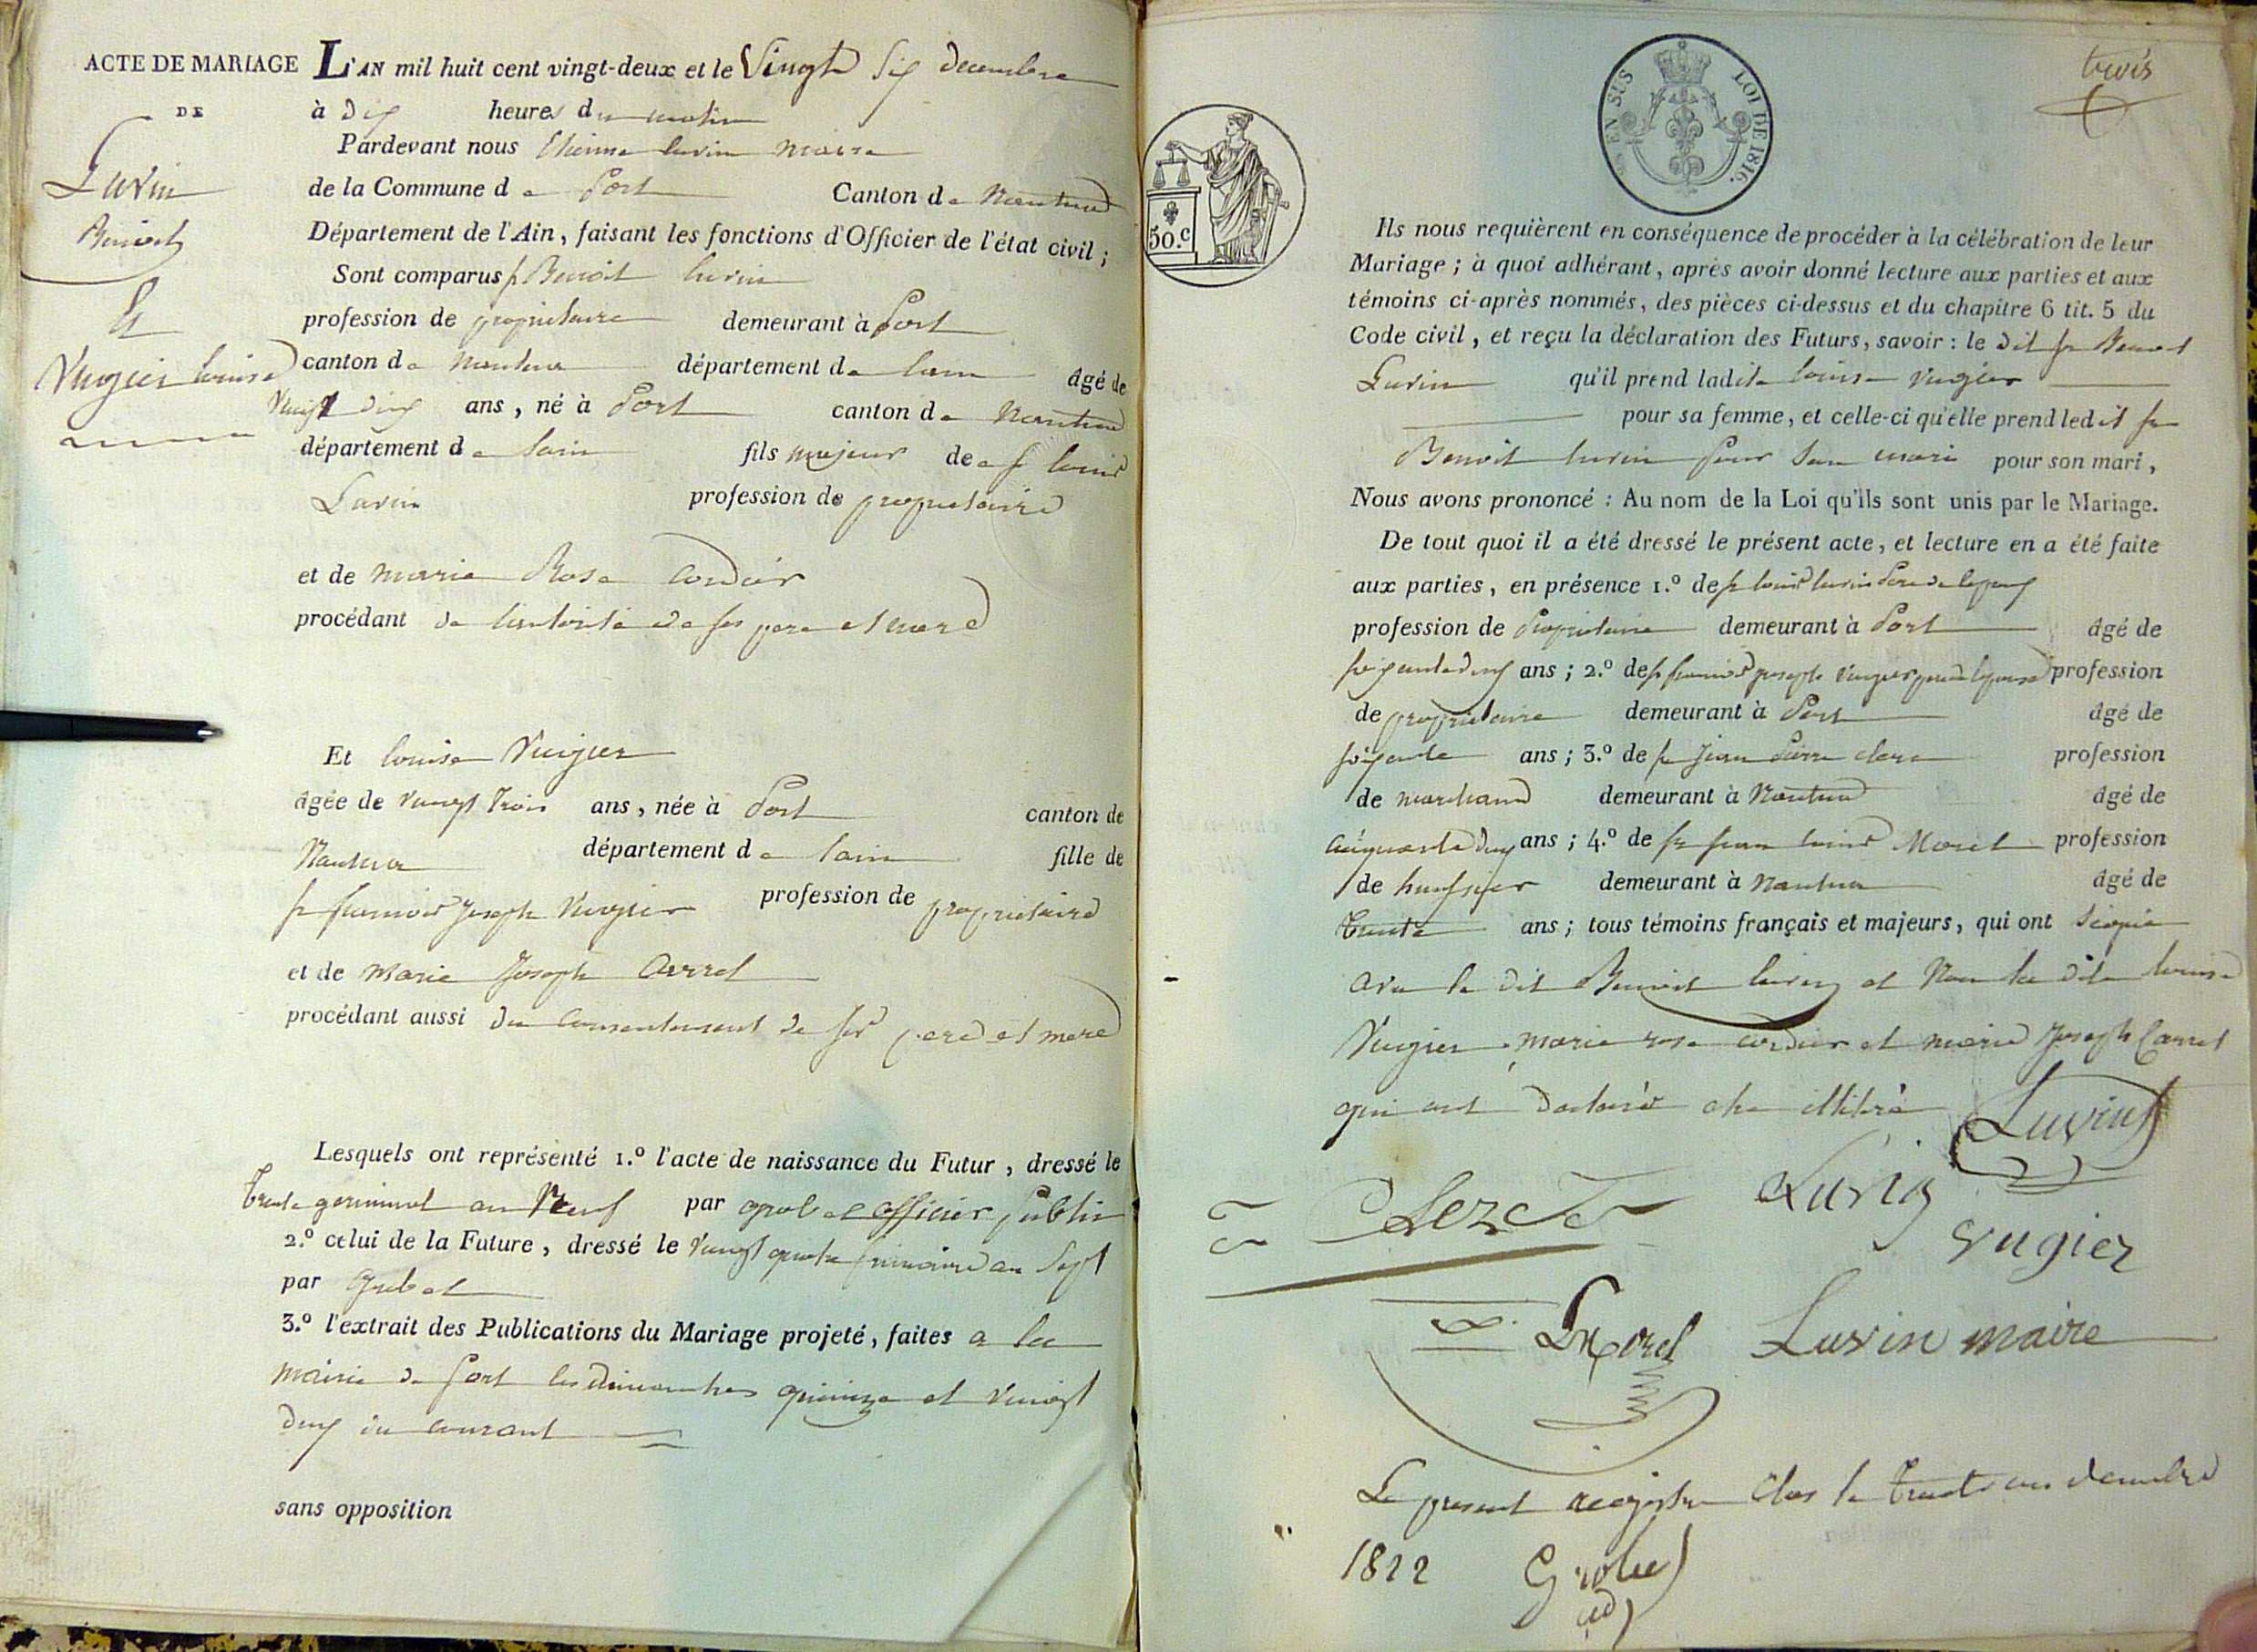 ACTE DE MARIAGE
DE
Luvin
Benoit
Et
Vugier louise
L'AN mil huit cent vingt-deux et le Vingt Six decembre
à Dix heures du matin
Pardevant nous Etienne luvin maire
de la Commune de Port Canton de Nantua
Département de l'Ain, faisant les fonctions d'Officier de l'état civil;
Sont comparus sr Benoit luvin
profession de propriétaire demeurant à Port
canton de Nantua département de lain âgé de
ans, né à Port canton de Nantua
département de lain fils majeur de sr louis
Luvin profession de propriétaire
et de marie Rose Cordier
procédant de lautorité de ses pere et mere
Et louise Vugier
âgée de vingt trois ans, née à Port canton de
Nantua département de lain fille de
sr francois Joseph Vugier profession de propriétaire
et de marie Joseph Carret
procédant aussi du consentement de ses pere et mere
Lesquels ont représenté 1.º l'acte de naissance du Futur, dressé le
trente germinal an Neuf par officier public
2.º celui de la Future, dressé le vingt quatre frimaire an Sept
par
3.º l'extrait des Publications du Mariage projeté, faites a la
mairie de port les dimanches quinze et vingt
deux du courant
sans opposition
EN SUS LOI DE 1816.
50.c
trois
Ils nous requièrent en conséquence de procéder à la célébration de leur
Mariage; à quoi adhérant, après avoir donné lecture aux parties et aux
témoins ci-après nommés, des pièces ci-dessus et du chapitre 6 tit. 5 du
Code civil, et reçu la déclaration des Futurs, savoir: le dit sr Benoit
Luvin qu'il prend ladite louise Vugier
pour sa femme, et celle-ci qu'elle prend ledit sr
Benoit luvin pour son mari pour son mari,
Nous avons prononcé: Au nom de la Loi qu'ils sont unis par le Mariage.
De tout quoi il a été dressé le présent acte, et lecture en a été faite
aux parties, en présence 1.º de sr louis luvin Pere de lepoux
profession de Propriétaire demeurant à Port âgé de
soixante deux ans; 2.º de sr francois joseph Vugier pere de lepouse profession
de propriétaire demeurant à Port âgé de
soixante ans; 3.º de sr Jean Pierre clerc profession
de marchand demeurant à Nantua âgé de
cinquante deux ans; 4.º de sr jean louis Morel profession
de huissier demeurant à Nantua âgé de
trente ans; tous témoins français et majeurs, qui ont signé
avec le dit Benoit luvin et Non la dite louise
Vugier, marie rose cordier et marie Joseph Carret
qui ont declaré etre illitéré
Luvin
Clerc Luvin
vugier
Morel Luvin maire
Le present registre clos le trente un decembre
1822